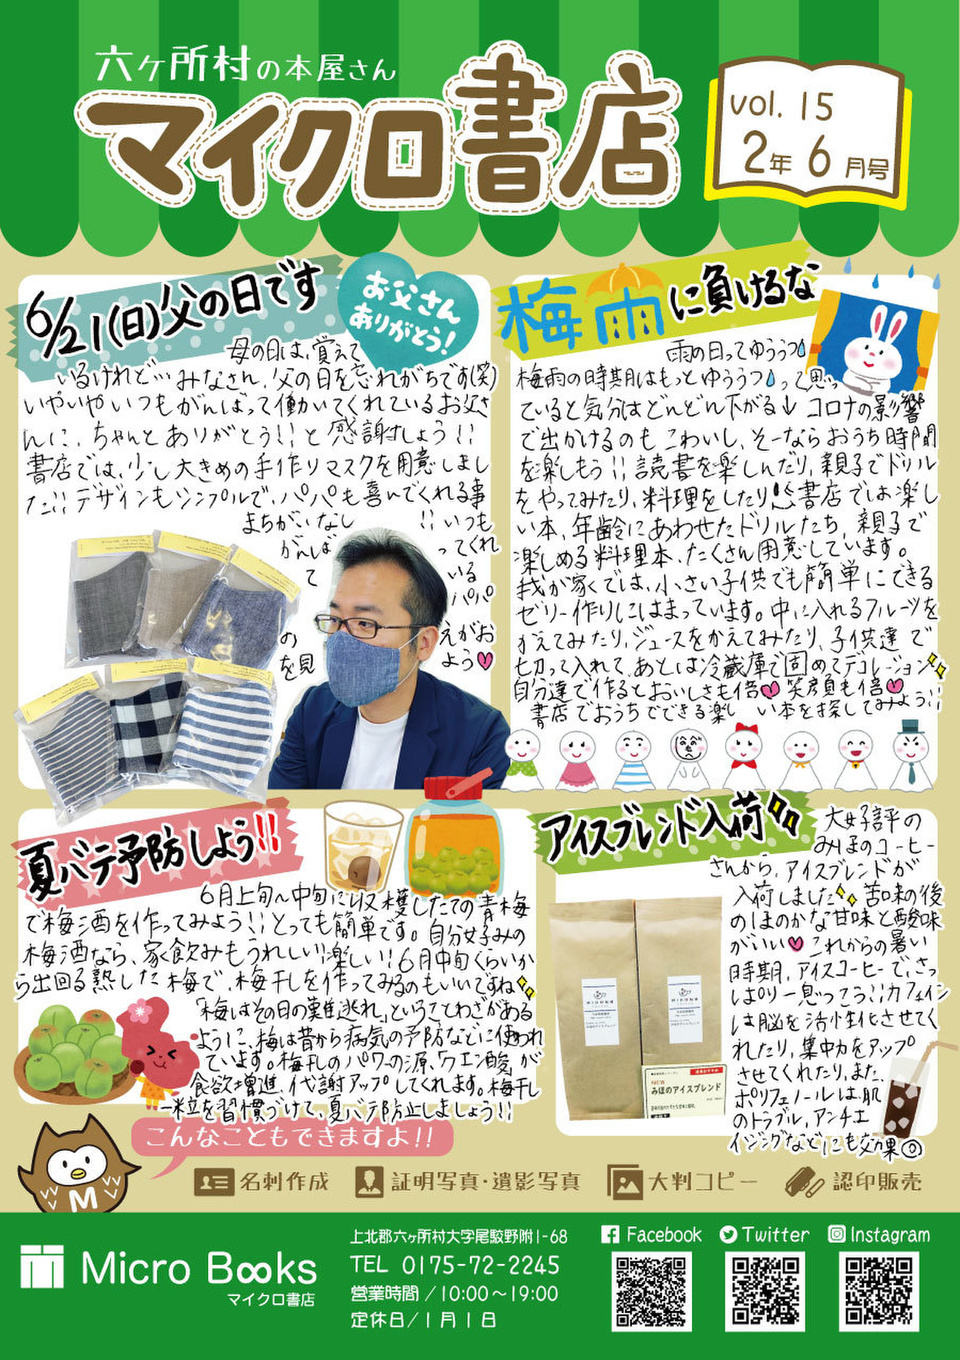 六ヶ所村の本屋さん
マイクロ書店
vol. 15
2年 6月号
6/21(日)父の日です
お父さん
ありがとう!
母の日は、覚えて
いるけれど… みなさん、父の日を忘れがちです(笑)
いやいや いつもがんばって働いてくれているお父さ
んに、ちゃんと ありがとう!! と 感謝しよう!!
書店では、少し大きめの手作りマスクを用意しまし
た!! デザインもシンプルで、パパも喜んでくれる事
まちがいなし!! いつも
がんばってくれ
ているパパ
のえがお
を見よう
梅雨に負けるな
雨の日ってゆううつ
梅雨の時期はもっとゆううつ って思っ
ていると気分はどんどん下がる↓ コロナの影響
で出かけるのも こわいし、そーなら おうち時間
を楽しもう!! 読書を楽しんだり、親子でドリル
をやってみたり、料理をしたり 書店では楽し
い本、年齢にあわせたドリルたち、親子で
楽しめる料理本、たくさん用意しています。
我が家では、小さい子供でも簡単にできる
ゼリー作りにはまっています。中に入れるフルーツを
かえてみたり、ジュースをかえてみたり、子供達で
切って入れて、あとは冷蔵庫で固めてデコレーション
自分達で作るとおいしさも倍 笑顔も倍
書店でおうちでできる楽しい本を探してみよう!!
夏バテ予防しよう!!
6月上旬〜中旬に収穫したての青梅
で梅酒を作ってみよう!! とっても簡単です。自分好みの
梅酒なら、家飲みもうれしい!楽しい!! 6月中旬くらいか
ら出回る熟した梅で、梅干しを作ってみるのもいいですね
「梅はその日の難逃れ」ということわざがある
ように、梅は昔から病気の予防などに使われ
ています。梅干しのパワーの源、「クエン酸」が
食欲増進、代謝アップしてくれます。梅干し
一粒を習慣づけて、夏バテ防止しましょう!!
アイスブレンド入荷
大好評の
みほのコーヒー
さんから、アイスブレンドが
入荷しました 苦味の後
のほのかな甘味と酸味
がいい これからの暑い
時期、アイスコーヒーで、さっ
しぱり一息つこう!! カフェイン
は脳を活性化させてく
れたり、集中力をアップ
させてくれたり、また、
ポリフェノールは肌
のトラブル、アンチエ
イジングなどにも効果◎
NEW
みほのアイスブレンド
こんなこともできますよ!!
M
名刺作成
証明写真・遺影写真
大判コピー
認印販売
Micro Books
マイクロ書店
上北郡六ヶ所村大字尾駮野附1-68
TEL 0175-72-2245
営業時間/10:00〜19:00
定休日/1月1日
Facebook
Twitter
Instagram